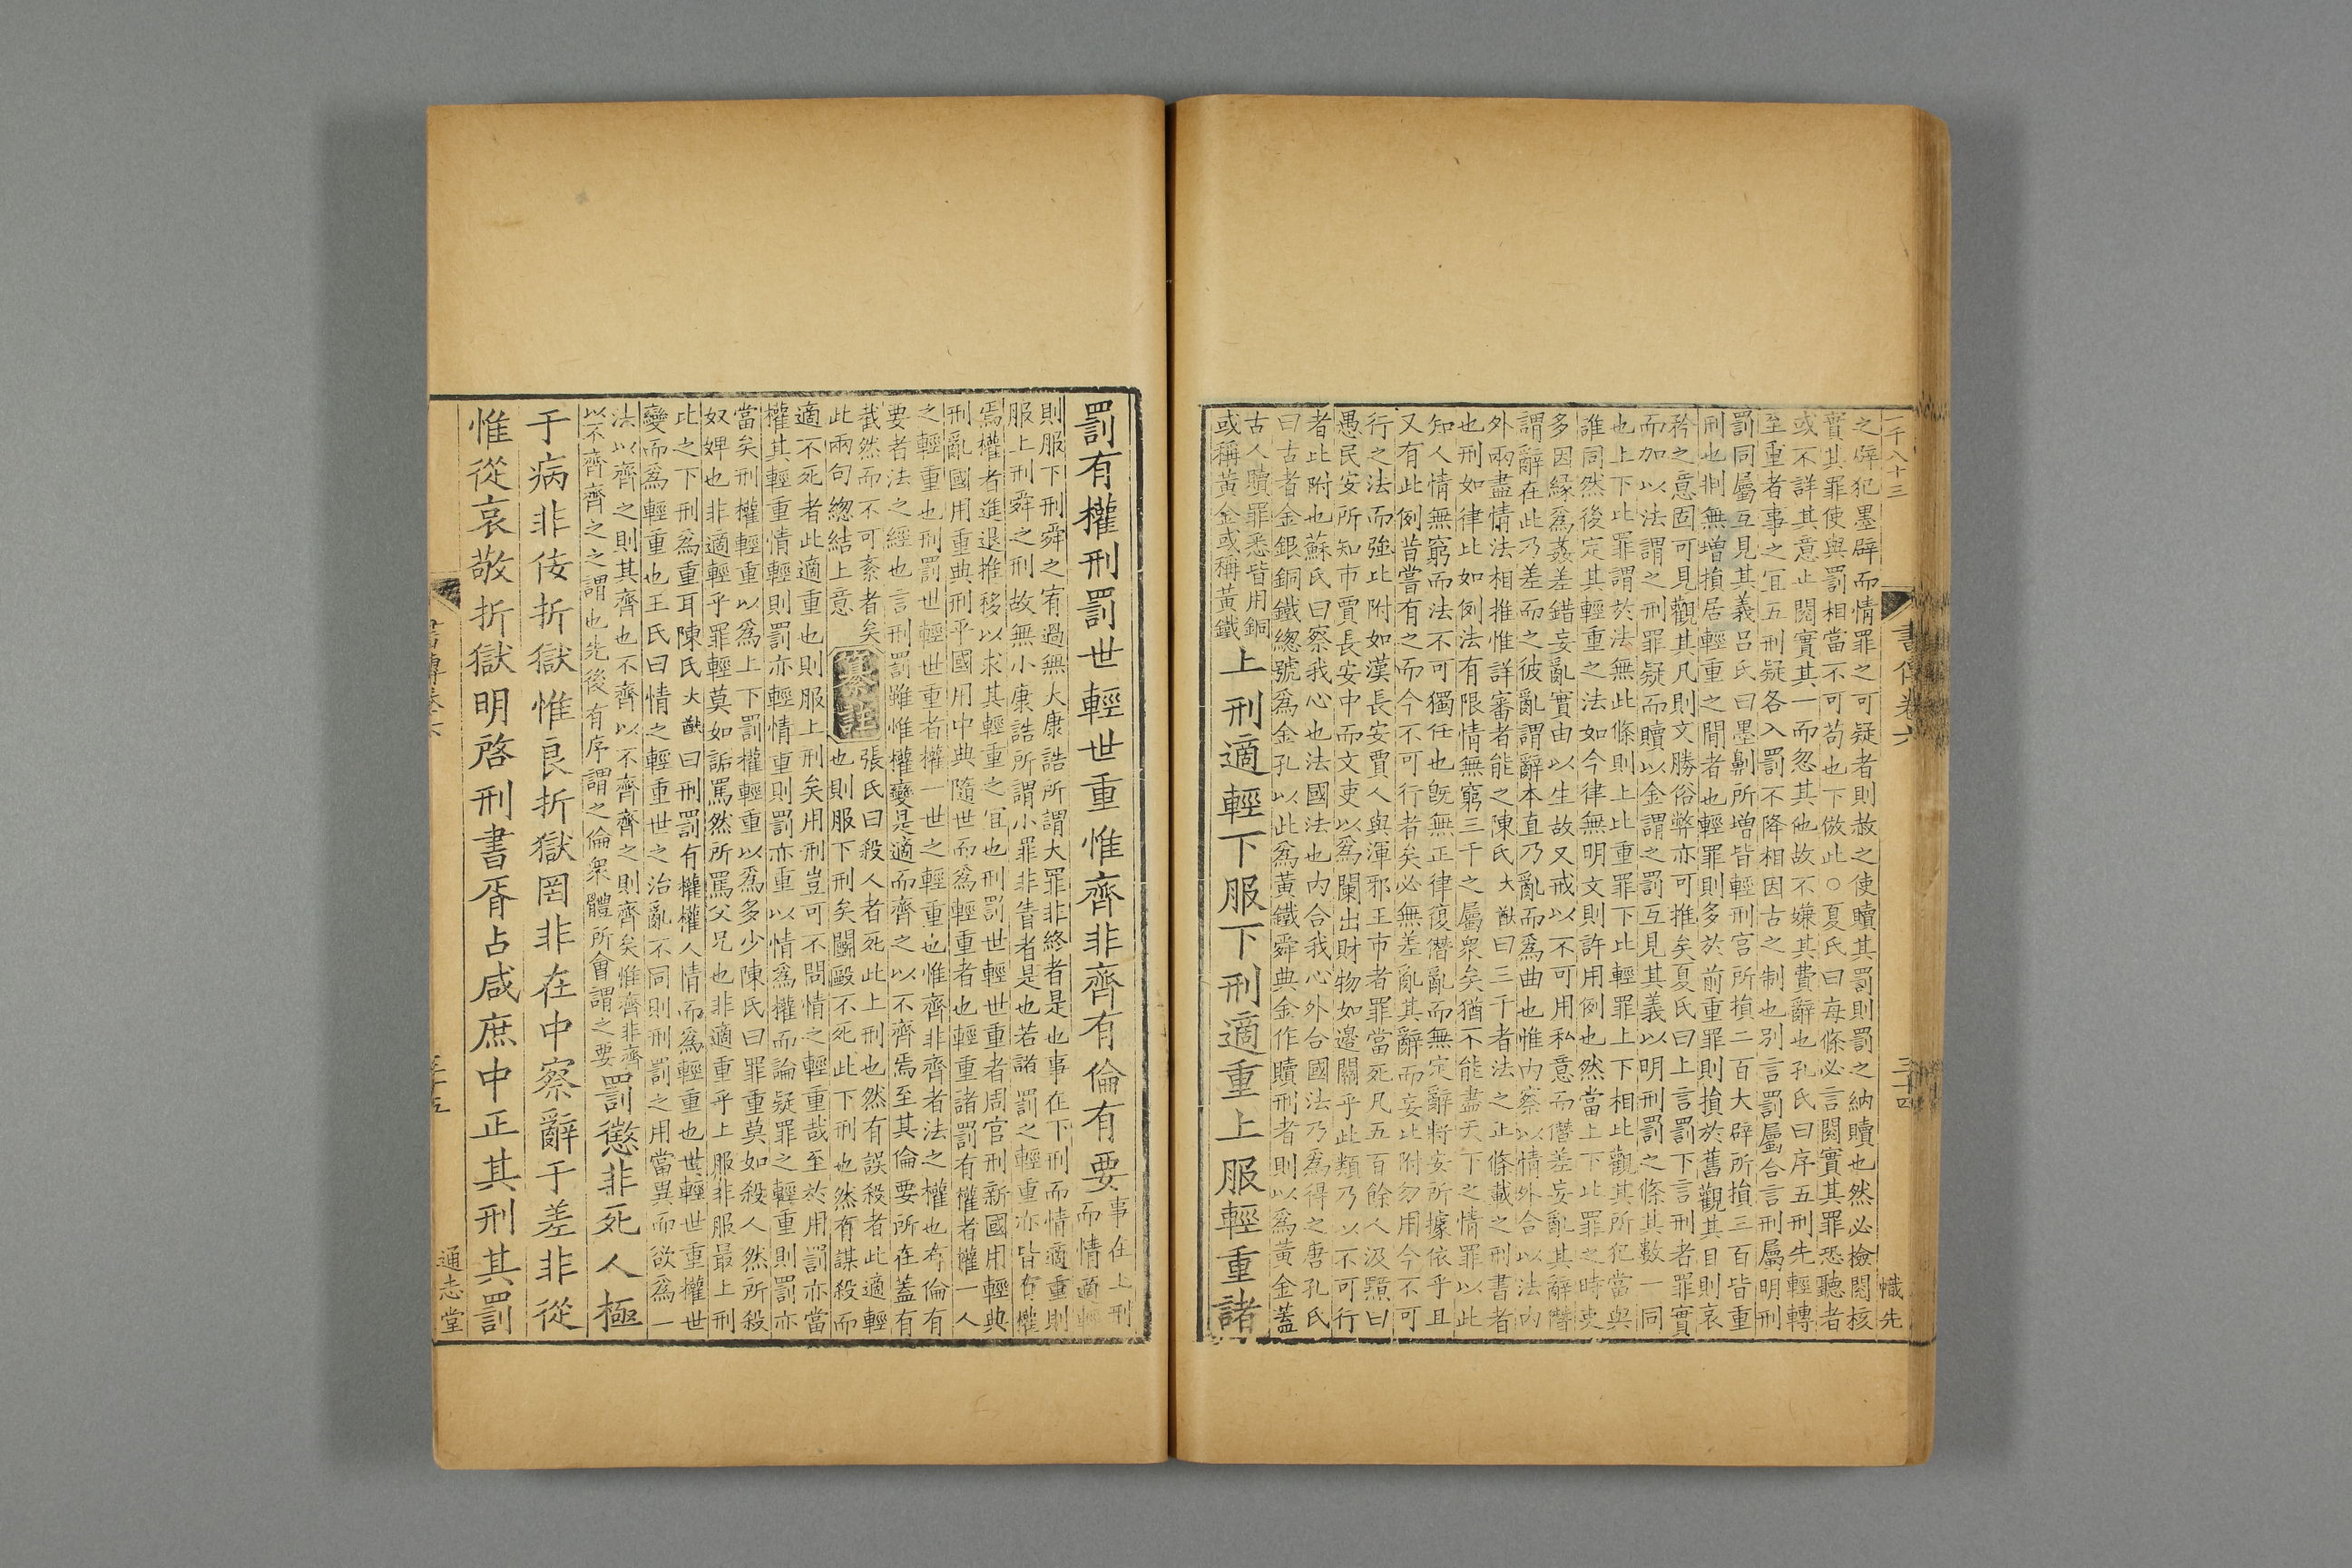 二千八十三
書傳卷六
三十四
幟先
之辟犯墨辟而情罪之可疑者則赦之使贖其罰則罰之納贖也然必檢閱核
實其罪使與罰相當不可苟也下倣此○夏氏曰每條必言閱實其罪恐聽者
或不詳其意止閱實其一而忽其他故不嫌其費辭也孔氏曰序五刑先輕轉
至重者事之宜五刑疑各入罰不降相因古之制也別言罰屬合言刑屬明刑
罰同屬互見其義呂氏曰墨劓所增皆輕刑宮所損二百大辟所損三百皆重
刑也剕無增損居輕重之閒者也輕罪則多於前重罪則損於舊觀其目則哀
矜之意固可見觀其凡則文勝俗弊亦可推矣夏氏曰上言罰下言刑者罪實
而加以法謂之刑罪疑而贖以金謂之罰互見其義以明刑罰之條其數一同
也上下比罪謂於法無此條則上比重罪下比輕罪上下相比觀其所犯當與
誰同然後定其輕重之法如今律無明文則許用例也然當上下比罪之時吏
多因緣爲姦差錯妄亂實由以生故又戒以不可用私意而僭差妄亂其辭僭
謂辭在此乃差而之彼亂謂辭本直乃亂而爲曲也惟內察以情外合以法內
外兩盡情法相推惟詳審者能之陳氏大猷曰三千者法之正條載之刑書者
也刑如律比如例法有限情無窮三千之屬衆矣猶不能盡天下之情罪以此
知人情無窮而法不可獨任也旣無正律復僭亂而無定辭將安所據依乎且
又有此例昔嘗有之而今不可行者矣必無差亂其辭而妄比附勿用今不可
行之法而強比附如漢長安賈人與渾邪王市者罪當死凡五百餘人汲黯曰
愚民安所知市賈長安中而文吏以爲闌出財物如邊關乎此類乃以不可行
者比附也蘇氏曰察我心也法國法也內合我心外合國法乃爲得之唐孔氏
曰古者金銀銅鐵總號爲金孔以此爲黃鐵舜典金作贖刑者則以爲黃金蓋
古人贖罪悉皆用銅
或稱黃金或稱黃鐵
上刑適輕下服下刑適重上服輕重諸
罰有權刑罰世輕世重惟齊非齊有倫有要
事在上刑
而情適輕
則服下刑舜之宥過無大康誥所謂大罪非終者是也事在下刑而情適重則
服上刑舜之刑故無小康誥所謂小罪非眚者是也若諸罰之輕重亦皆有權
焉權者進退推移以求其輕重之宜也刑罰世輕世重者周官刑新國用輕典
刑亂國用重典刑平國用中典隨世而爲輕重者也輕重諸罰有權者權一人
之輕重也刑罰世輕世重者權一世之輕重也惟齊非齊者法之權也有倫有
要者法之經也言刑罰雖惟權變是適而齊之以不齊焉至其倫要所在蓋有
截然而不可紊者矣
此兩句總結上意
纂註
張氏曰殺人者死此上刑也然有誤殺者此適輕
也則服下刑矣鬭毆不死此下刑也然有謀殺而
適不死者此適重也則服上刑矣用刑豈可不問情之輕重哉至於用罰亦當
權其輕重情輕則罰亦輕情重則罰亦重以情爲權而論疑罪之輕重則罰亦
當矣刑權輕重以爲上下罰權輕重以爲多少陳氏曰罪重莫如殺人然所殺
奴婢也非適輕乎罪輕莫如詬罵然所罵父兄也非適重乎上服非服最上刑
此之下刑爲重耳陳氏大猷曰刑罰有權權人情而爲輕重也世輕世重權世
變而爲輕重也王氏曰情之輕重世之治亂不同則刑罰之用當異而欲爲一
法以齊之則其齊也不齊以不齊齊之則齊矣惟齊非齊
以不齊齊之之謂也先後有序謂之倫衆體所會謂之要
罰懲非死人極
于病非佞折獄惟良折獄罔非在中察辭于差非從
惟從哀敬折獄明啓刑書胥占咸庶中正其刑其罰
書傳卷六
三十五
通志堂